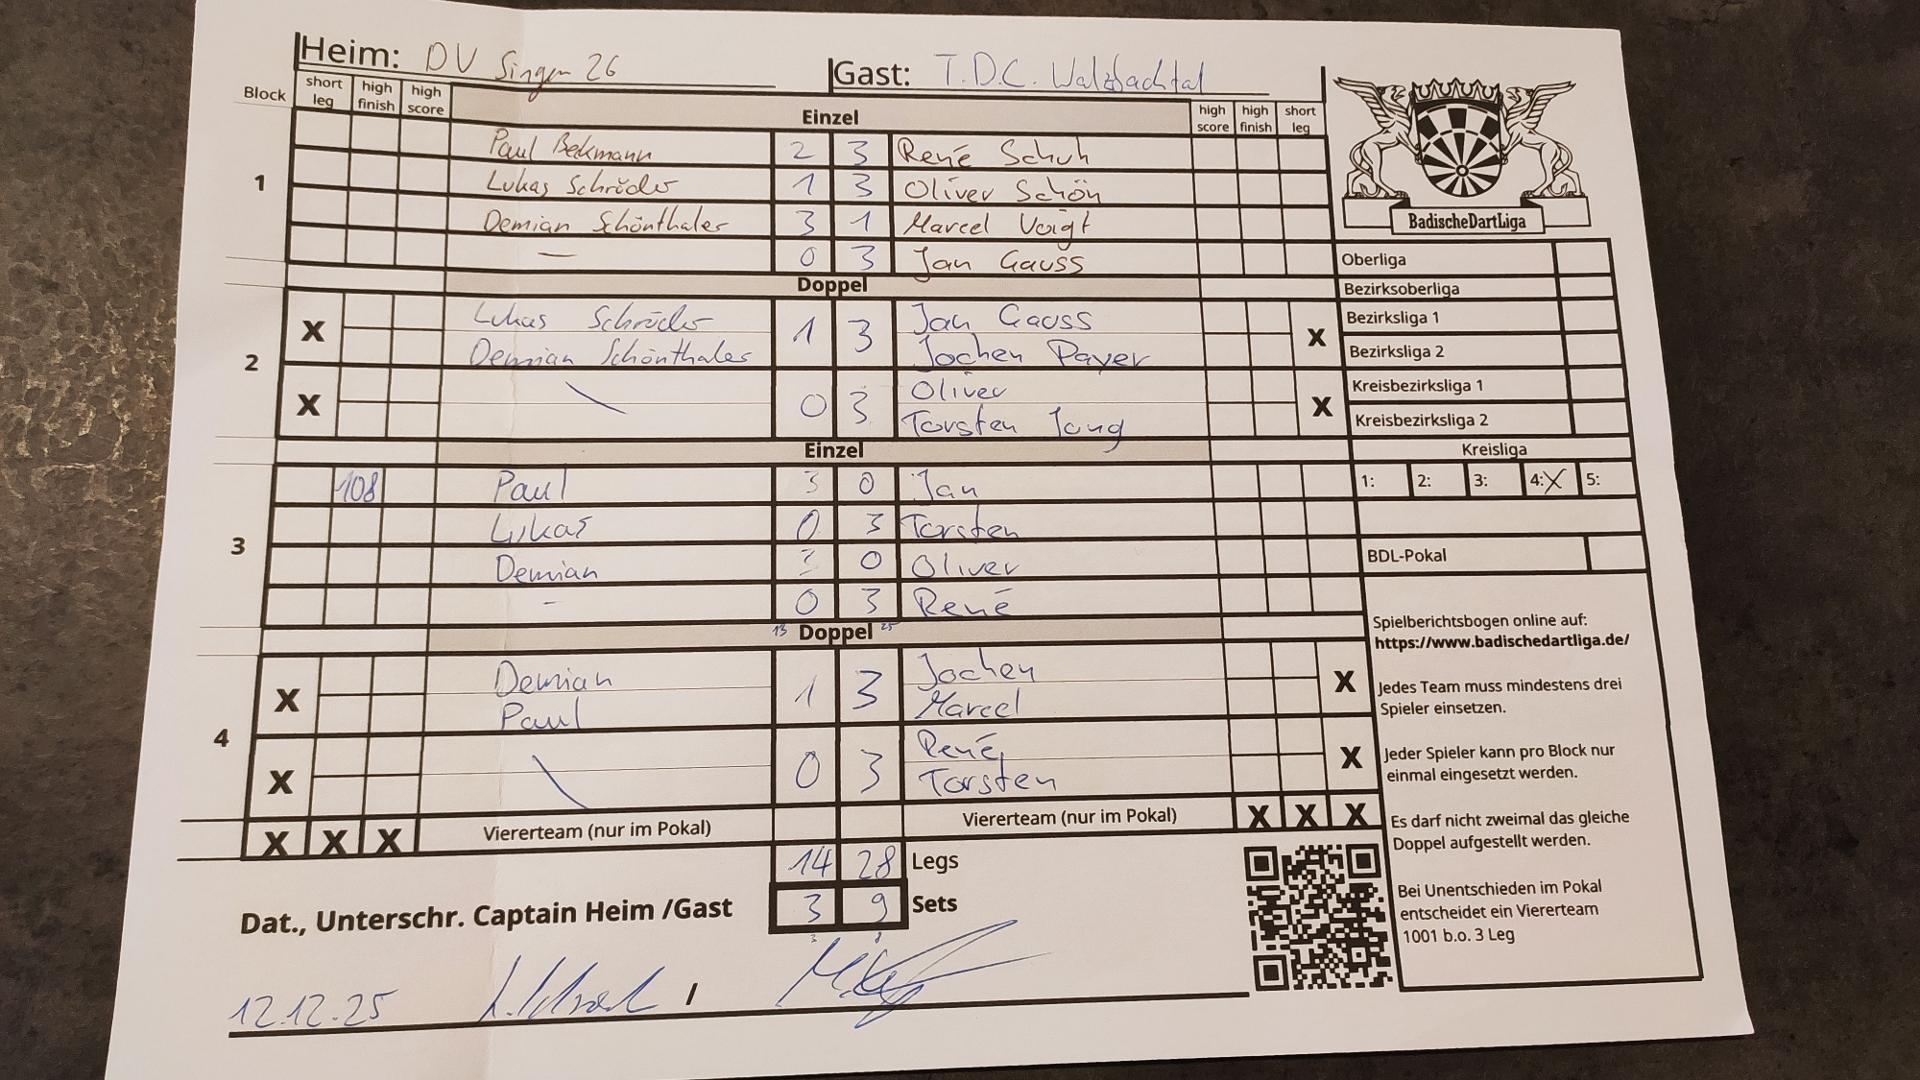 Heim: DV Singen 26 Gast: T.D.C. Walzbachtal
Block short leg high finish high score Einzel high score high finish short leg
1
Paul Bekmann 2 3 René Schuh
Lukas Schröder 1 3 Oliver Schön
Demian Schönthaler 3 1 Marcel Voigt
— 0 3 Jan Gauss
Doppel
2
X Lukas Schröder 1 3 Jan Gauss X
Demian Schönthaler Jochen Payer
X \ 0 3 Oliver X
Torsten Jung
Einzel
3
108 Paul 3 0 Jan
Lukas 0 3 Torsten
Demian 3 0 Oliver
- 0 3 René
13 Doppel 25
4
X Demian 1 3 Jochen X
Paul Marcel
X \ 0 3 René X
Torsten
X X X Viererteam (nur im Pokal) Viererteam (nur im Pokal) X X X
14 28 Legs
3 9 Sets
Dat., Unterschr. Captain Heim /Gast
12.12.25 /
BadischeDartLiga
Oberliga
Bezirksoberliga
Bezirksliga 1
Bezirksliga 2
Kreisbezirksliga 1
Kreisbezirksliga 2
Kreisliga
1: 2: 3: 4:X 5:
BDL-Pokal
Spielberichtsbogen online auf:
https://www.badischedartliga.de/
Jedes Team muss mindestens drei
Spieler einsetzen.
Jeder Spieler kann pro Block nur
einmal eingesetzt werden.
Es darf nicht zweimal das gleiche
Doppel aufgestellt werden.
Bei Unentschieden im Pokal
entscheidet ein Viererteam
1001 b.o. 3 Leg